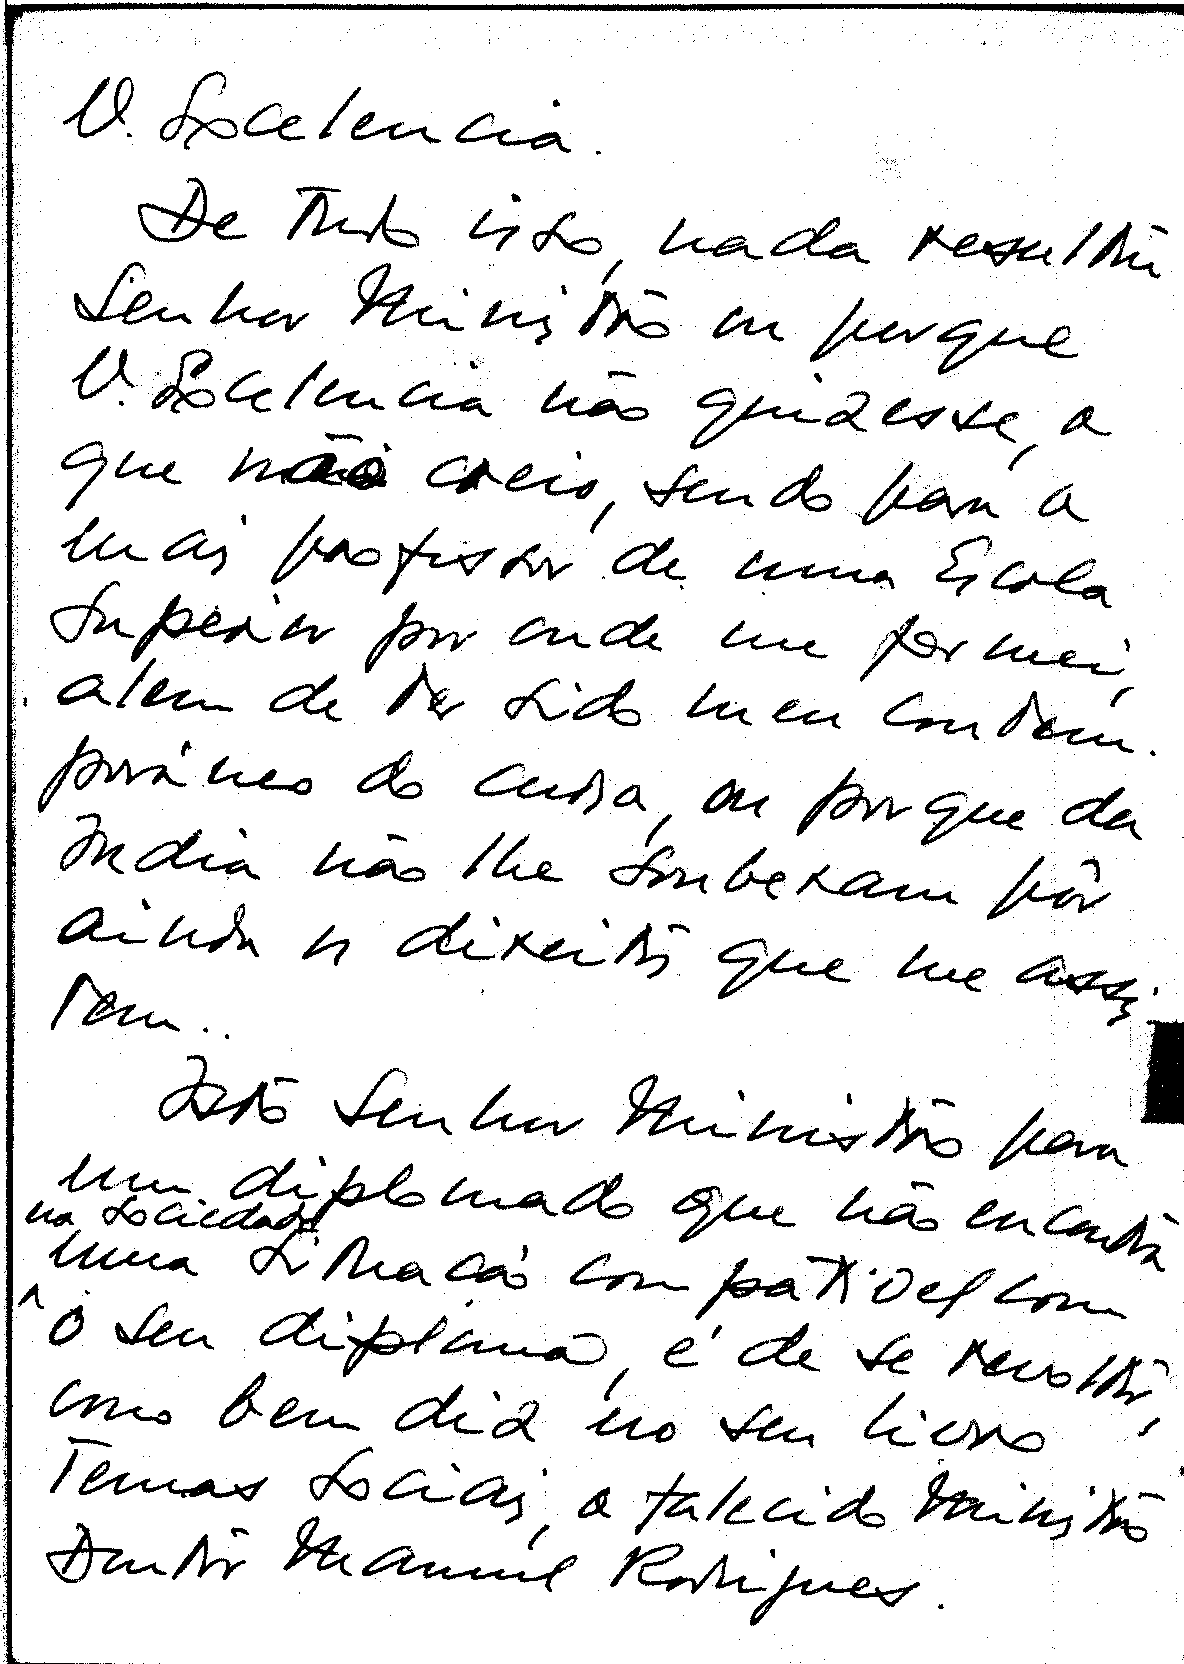 V. Excelencia.
De tudo isto, nada resultou
Senhor Ministro ou porque
V. Excelencia não quizesse, o
que não creio, sendo para o
mais professor de uma Escola
Superior por onde me formei,
alem de ter sido meu contem-
porâneo do curso, ou porque da
India não lhe souberam pôr
ainda os direitos que me assis
tem..
Isto Senhor Ministro para
um diplomado que não encontra
na sociedade
uma situação compativel com
o seu diploma, é de se revoltar,
como bem diz no seu livro
Temas Sociais, o falecido Ministro
Doutor Manuel Rodrigues.